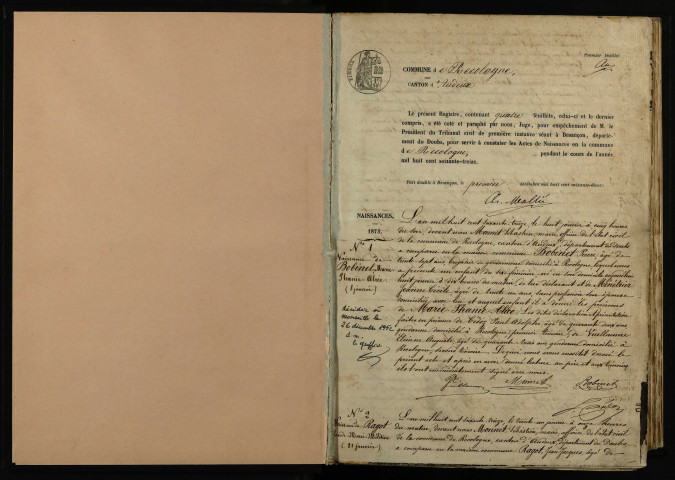 Premier feuillet
COMMUNE d e Recologne,
CANTON d' Audeux
Le présent Registre, contenant quatre feuillets, celui-ci et le dernier
compris, a été coté et paraphé par nous, Juge, pour empêchement de M. le
Président du Tribunal civil de première instance séant à Besançon, départe-
ment du Doubs, pour servir à constater les Actes de Naissances en la commune
d e Recologne, pendant le cours de l'année
mil huit cent soixante-treize.
Fait double à Besançon, le premier décembre mil huit cent soixante-douze.
NAISSANCES.
1873.
N° 1
Naissance de
Bobinet Marie
(8 janvier)
Décédée à
Marseille le
26 décembre 1952
L'an mil huit cent soixante-treize, le huit janvier à cinq heures
du soir, devant nous Monnet Sébastien, maire, officier de l'état civil
de la commune de Recologne, canton d'Audeux, département du Doubs
a comparu en la maison commune Bobinet Pierre, âgé de
trente sept ans, brigadier de gendarmerie domicilié à Recologne, lequel nous
a présenté un enfant du sexe féminin, né en son domicile aujourd'hui
huit janvier à dix heures du matin, de lui déclarant et de Ménétrier
Jeanne Cécile, âgée de trente un ans, sans profession son épouse
domiciliée avec lui, et auquel enfant il a donné les prénoms
de Marie
faites en présence de Paul Adolphe âgé de quarante deux ans
gendarme domicilié à Recologne, premier témoin, et de Guillaume
Auguste, âgé de quarante trois ans gendarme domicilié à
Recologne, second témoin. Lequel nous avons dressé le
présent acte et après en avoir donné lecture au père et aux témoins
ils l'ont immédiatement signé avec nous.
Monnet Bobinet
N° 2
Ragot
(31 janvier)
L'an mil huit cent soixante-treize, le trente un janvier à onze heures
du matin, devant nous Monnet Sébastien, maire officier de l'état civil
de la commune de Recologne, canton d'Audeux, département du Doubs,
a comparu en la maison commune Ragot, Jean Jacques, âgé de